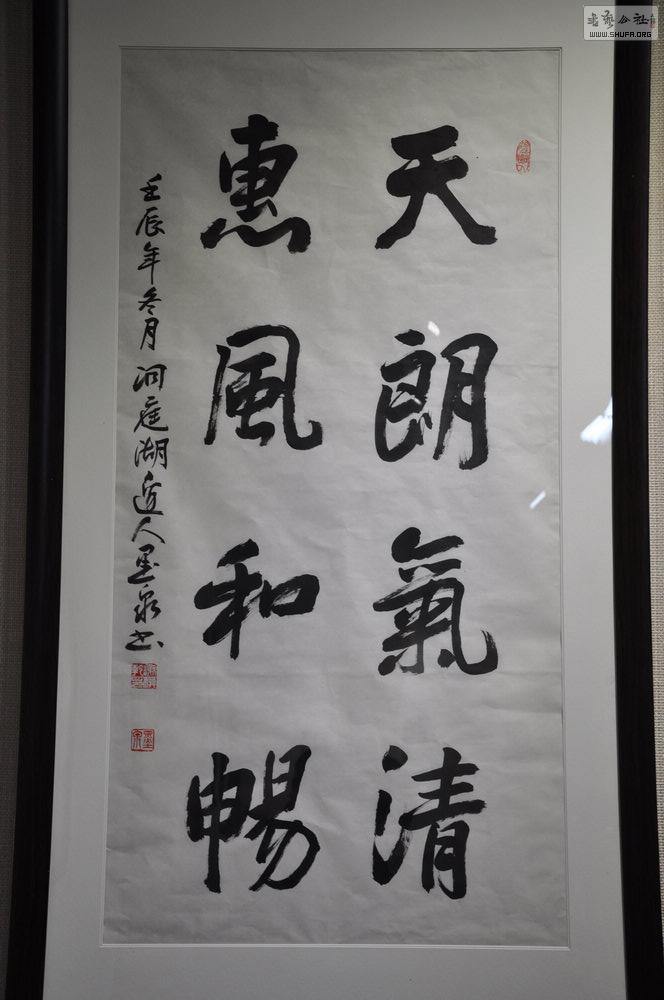 天朗氣清
惠風和暢
壬辰年冬月洞庭湖近人墨泉书
墨泉
WWW.SHUFA.ORG